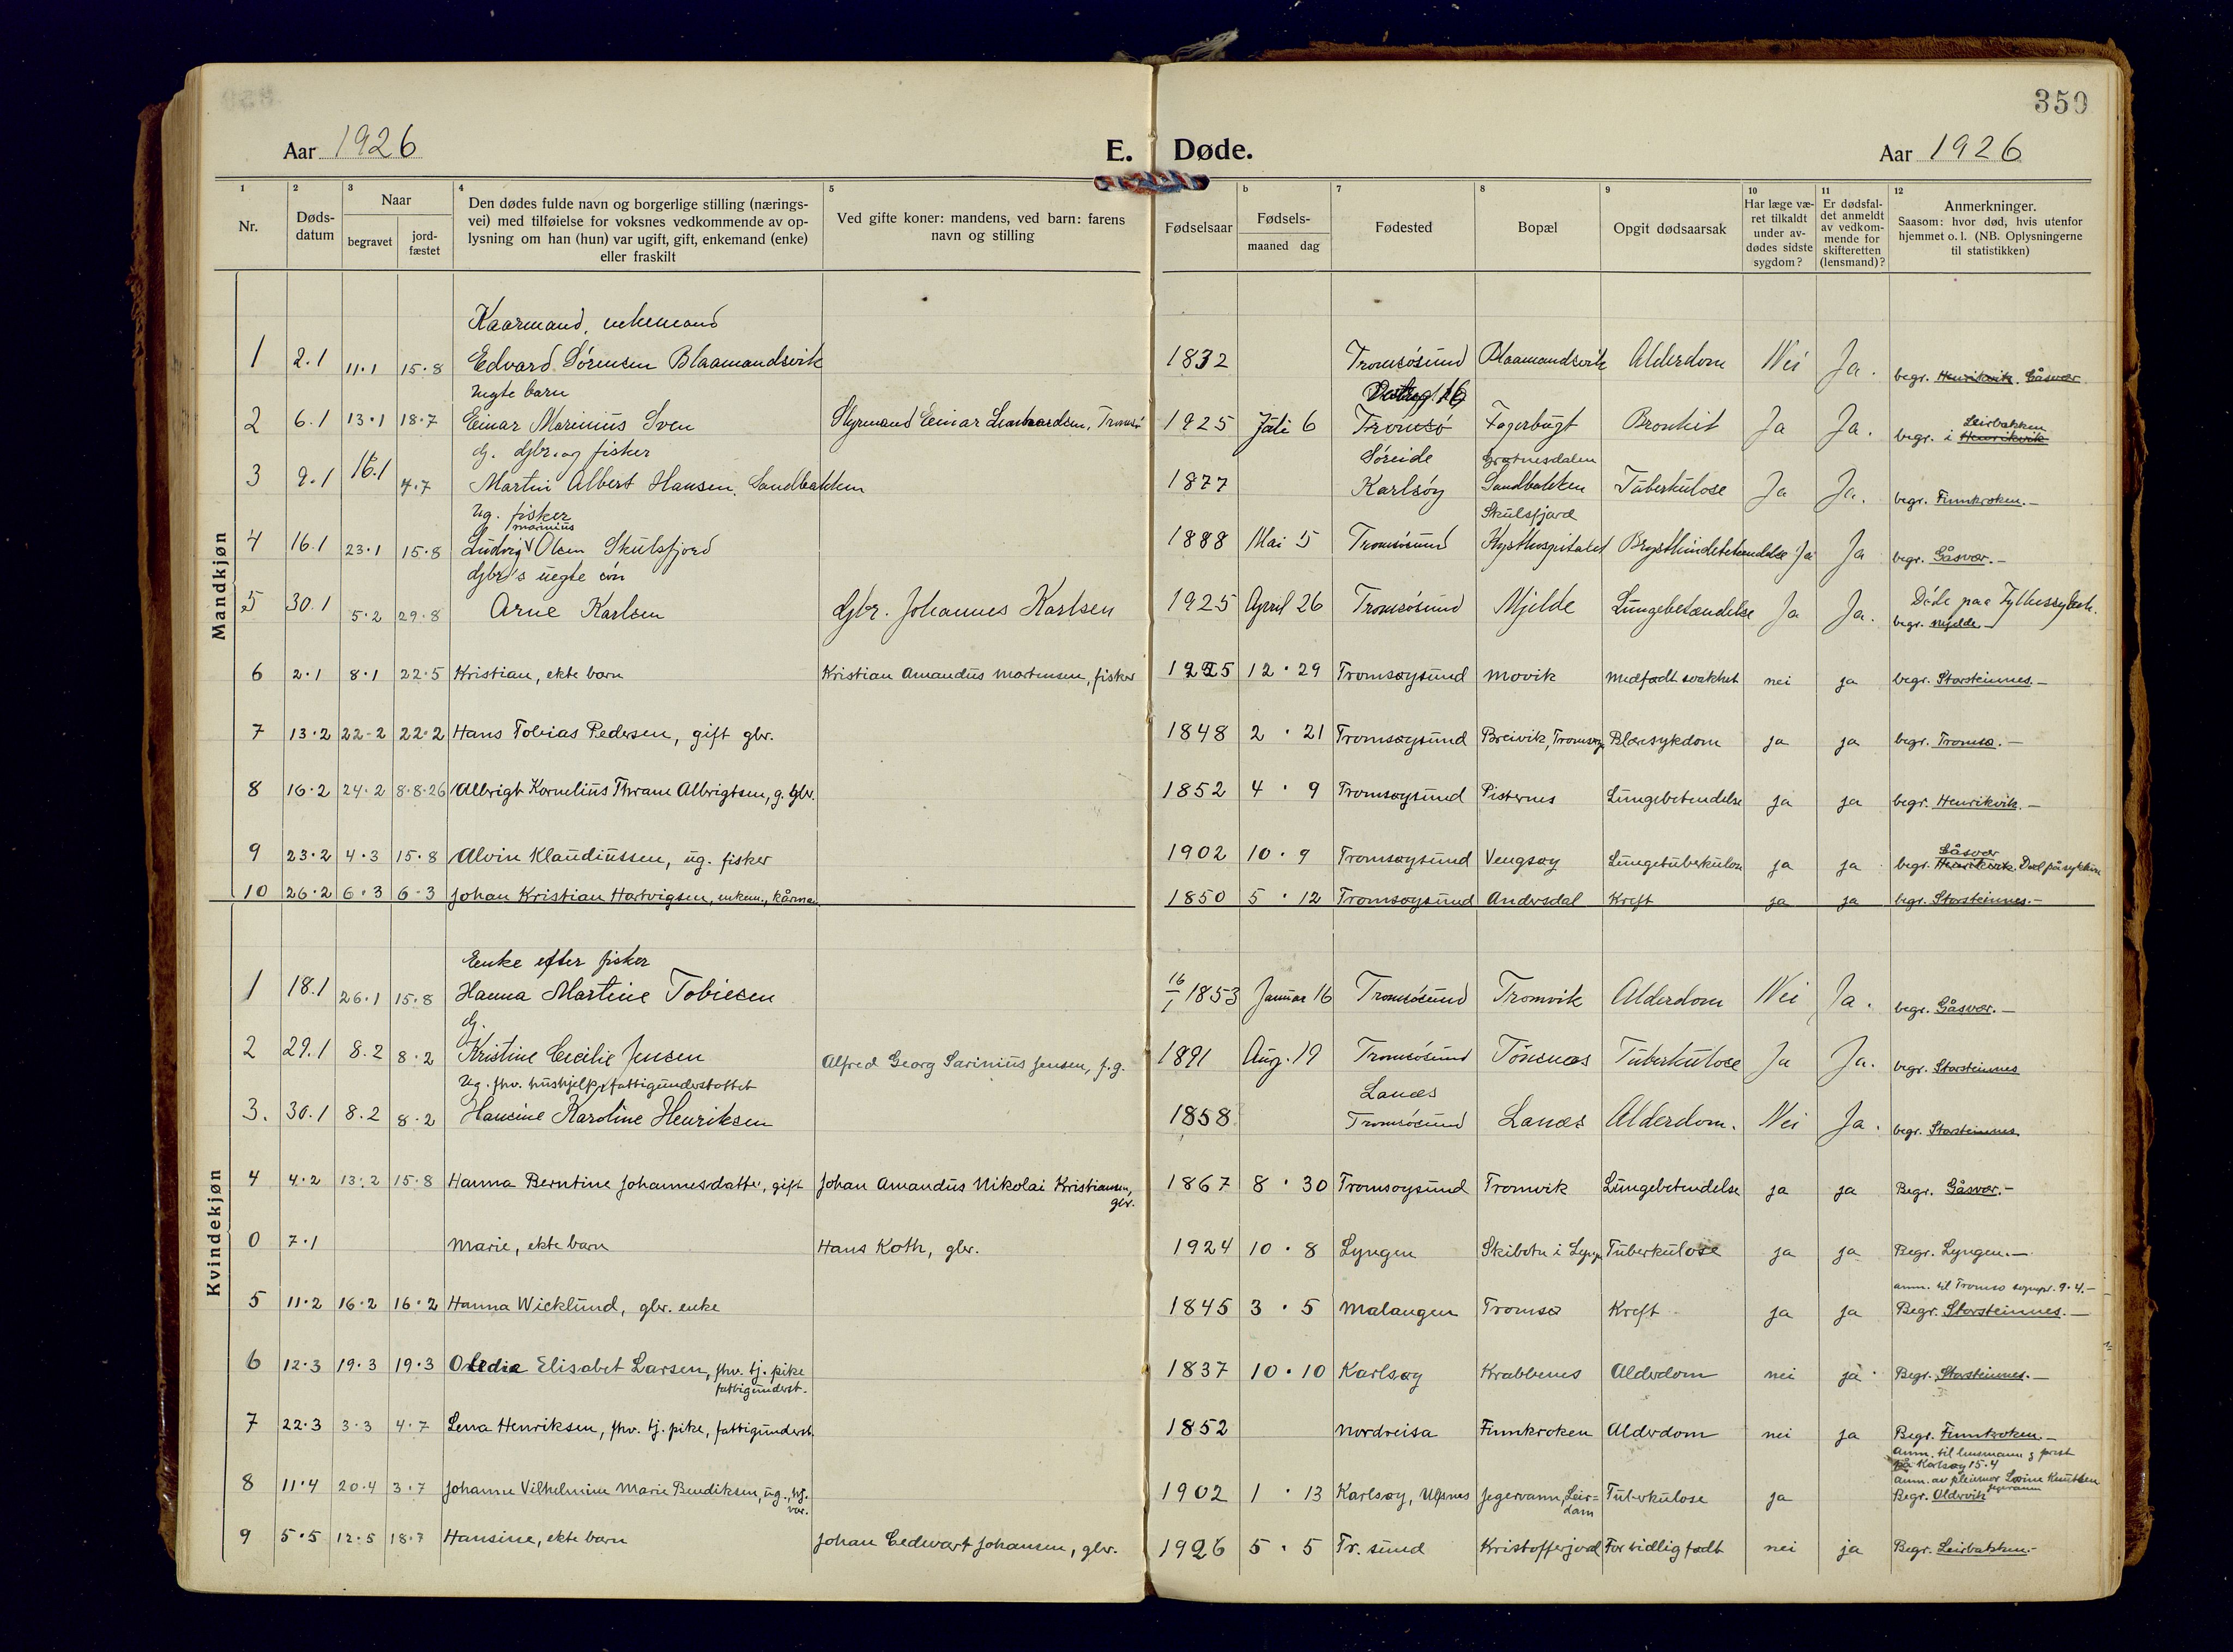 350
Aar 1926
E. Døde.
Aar 1926
1 2 3 4 5 b 7 8 9 10 11 12
Nr.
Døds-
datum
Naar
begravet
jord-
fæstet
Den dødes fulde navn og borgerlige stilling (nærings-
vei) med tilføielse for voksnes vedkommende av op-
lysning om han (hun) var ugift, gift, enkemand (enke)
eller fraskilt
Ved gifte koner: mandens, ved barn: farens
navn og stilling
Fødselsaar
Fødsels-
maaned dag
Fødested
Bopæl
Opgit dødsaarsak
Har læge væ-
ret tilkaldt
under av-
dødes sidste
sygdom?
Er dødsfal-
det anmeldt
av vedkom-
mende for
skifteretten
(lensmand)?
Anmerkninger.
Saasom: hvor død, hvis utenfor
hjemmet o. l. (NB. Oplysningerne
til statistikken)
Mandkjøn
Kaarmand, enkemand
1 2.1 11.1 15.8 Edvard Sörensen Blaamandsvik 1832 Tromsösund Blaamandsvik Alderdom Nei Ja. begr. Henrikvik. Gåsvær
Uegte barn
2 6.1 13.1 18.7 Einar Marinius Sven Styrmand Einar Tromsö 1925 Juli 6 Tromsö Fagerbugt Bronkit Ja Ja. begr. i Henrikvik Leirbakken
g. gbr. og fisker Söreide Grötnesdalen
3 9.1 16.1 4.7 Martin Albert Hansen, Sandbakken 1877 Karlsöy Sandbakken Tuberkulose Ja Ja. begr. Finnkroken.-
Ug. fisker Skulsfjord
marinius
4 16.1 23.1 15.8 Ludvig Olsen Skulsfjord 1888 Mai 5 Tromsösund Kysthospitalet Brysthindebetændelse Ja Ja begr. Gåsvær.-
gbr's uegte sön
5 30.1 5.2 29.8 Arne Karlsen Gbr. Johannes Karlsen 1925 April 26 Tromsösund Mjelde Lungebetændelse Ja Ja. Döde paa Fylkessykeh.
begr. Mjelde.-
6 2.1 8.1 22.5 Kristian, ekte barn Kristian Amandus Martinsen, fisker 1925 12.29 Tromsøysund Movik Medfødt svakhet nei ja begr. Storsteinnes.-
7 13.2 22.2 22.2 Hans Tobias Pedersen, gift gbr. 1848 2.21 Tromsøysund Breivik, Tromsøy Blæresykdom ja ja begr. Tromsø.-
8 16.2 24.2 8.8.26 Albrigt Kornelius Thrane Albrigtsen, g. gbr. 1852 4.9 Tromsøysund Pisternes Lungebetendelse ja ja begr. Henrikvik.-
9 23.2 4.3 15.8 Alvin Klaudiussen, ug. fisker 1902 10.9 Tromsøysund Vengsøy Lungetuberkulose ja ja begr. Henrikvik. Gåsvær Død på sykehus
10 26.2 6.3 6.3 Johan Kristian Hartvigsen, enkem., kårman 1850 5.12 Tromsøysund Andersdal Kreft ja ja begr. Storsteinnes.-
Kvindekjøn
Enke efter fisker
1 18.1 26.1 15.8 Hanna Martine Tobiesen 16/1 1853 Januar 16 Tromsösund Tromvik Alderdom Nei Ja. begr. Gåsvær.-
g.
2 29.1 8.2 8.2 Kristine Cecilie Jensen Alfred Georg Sarinius Jensen, f.g. 1891 Aug. 19 Tromsösund Tönsnes Tuberkulose Ja Ja. begr. Storsteinnes
Ug. fhv. hushjelp, fattigunderstøttet Lanes
3. 30.1 8.2 8.2 Hansine Karoline Henriksen 1858 Tromsösund Lanes Alderdom. Nei Ja. begr. Storsteinnes
4 4.2 13.2 15.8 Hanna Berntine Johannesdatter, gift Johan Amandus Nikolai Kristiansen, gbr. 1867 8.30 Tromsøysund Tromvik Lungebetendelse ja ja Begr. Gåsvær.-
0 7.1 Marie, ekte barn Hans Koth, gbr. 1924 10.8 Lyngen Skibotn i Lyngen Tuberkulose ja ja Begr. Lyngen.-
anm. til Tromsø sognepr. 9.4.-
5 11.2 16.2 16.2 Hanna Wicklund, gbr. enke 1845 3.5 Malangen Tromsø Kreft ja ja Begr. Storsteinnes.-
6 12.3 19.3 19.3 Oledie Elisabet Larsen, fhv. tj. pike fattigunderst. 1837 10.10 Karlsøy Krabbenes Alderdom nei ja Begr. Storsteinnes.-
7 22.3 3.3 4.7 Lena Henriksen, fhv. tj. pike, fattigunderst. 1852 Nordreisa Finnkroken Alderdom nei ja Begr. Finnkroken.-
Anm. til lensmann & prest
på Karlsøy 15.4
anm. av pleiemor Lorine Knutsen
Jegervann
8 11.4 20.4 3.7 Johanne Vilhelmine Marie Bendiksen, ug., hj. vær. 1902 1.13 Karlsøy, Ulfsnes Jegervann, Leir= Tuberkulose ja Begr. Oldervik
9 5.5 12.5 18.7 Hansine, ekte barn Johan Eedvart Johansen, gbr. 1926 5.5 Tr. sund Kristofferjord For tidlig født nei ja Begr. Leirbakken.-